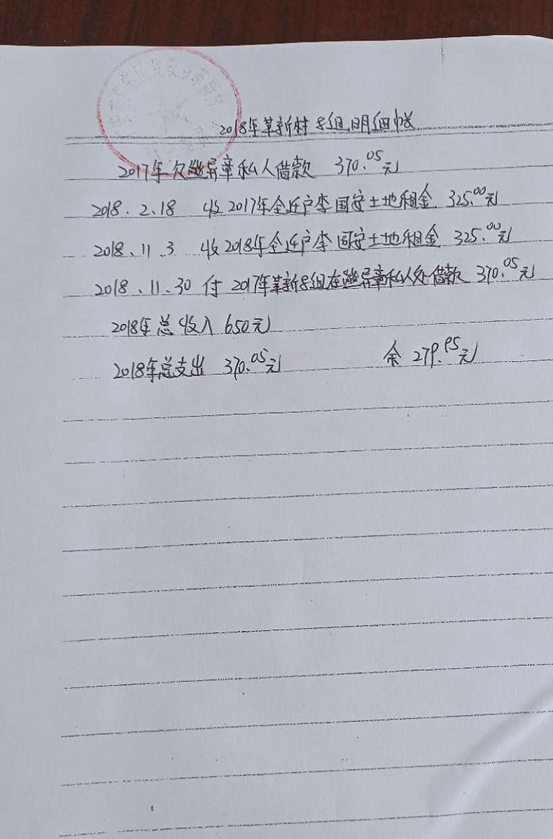 2018年革新村8组明细帐
2017年欠赵异章私人借款 370.05元
2018.2.18 收2017年全迁户李国安土地租金 325.00元
2018.11.3 收2018年全迁户李国安土地租金 325.00元
2018.11.30 付2017年革新8组在赵异章私人处借款 370.05元
2018年总收入 650元
2018年总支出 370.05元 余 279.95元